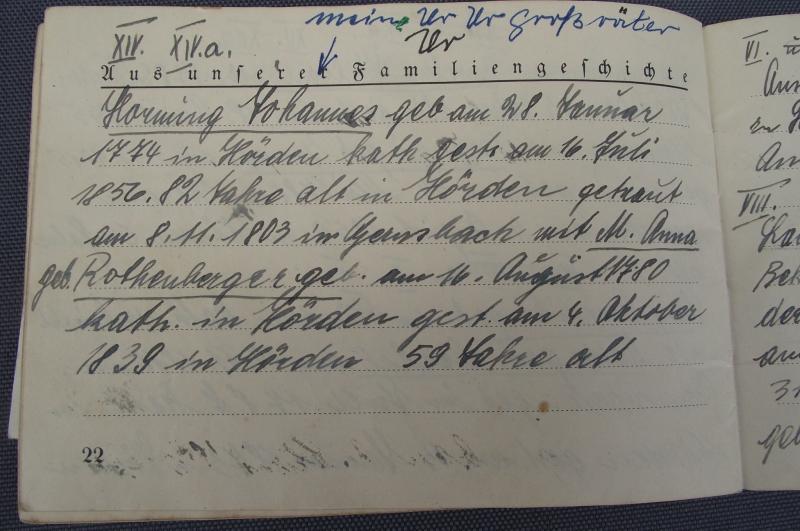 meine Ur Ur Großväter
Ur
XIV. XIV.a.
Aus unserer Familiengeschichte
Hornung Johannes geb am 28. Januar
1774 in Hörden kath gest. am 16. Juli
1856. 82 Jahre alt in Hörden getraut
am 8.11.1803 in Gernsbach mit M. Anna
geb. Rothenberger geb. am 16. August 1780
kath. in Hörden gest. am 4. Oktober
1839 in Hörden 59 Jahre alt
22
VI.
VIII.